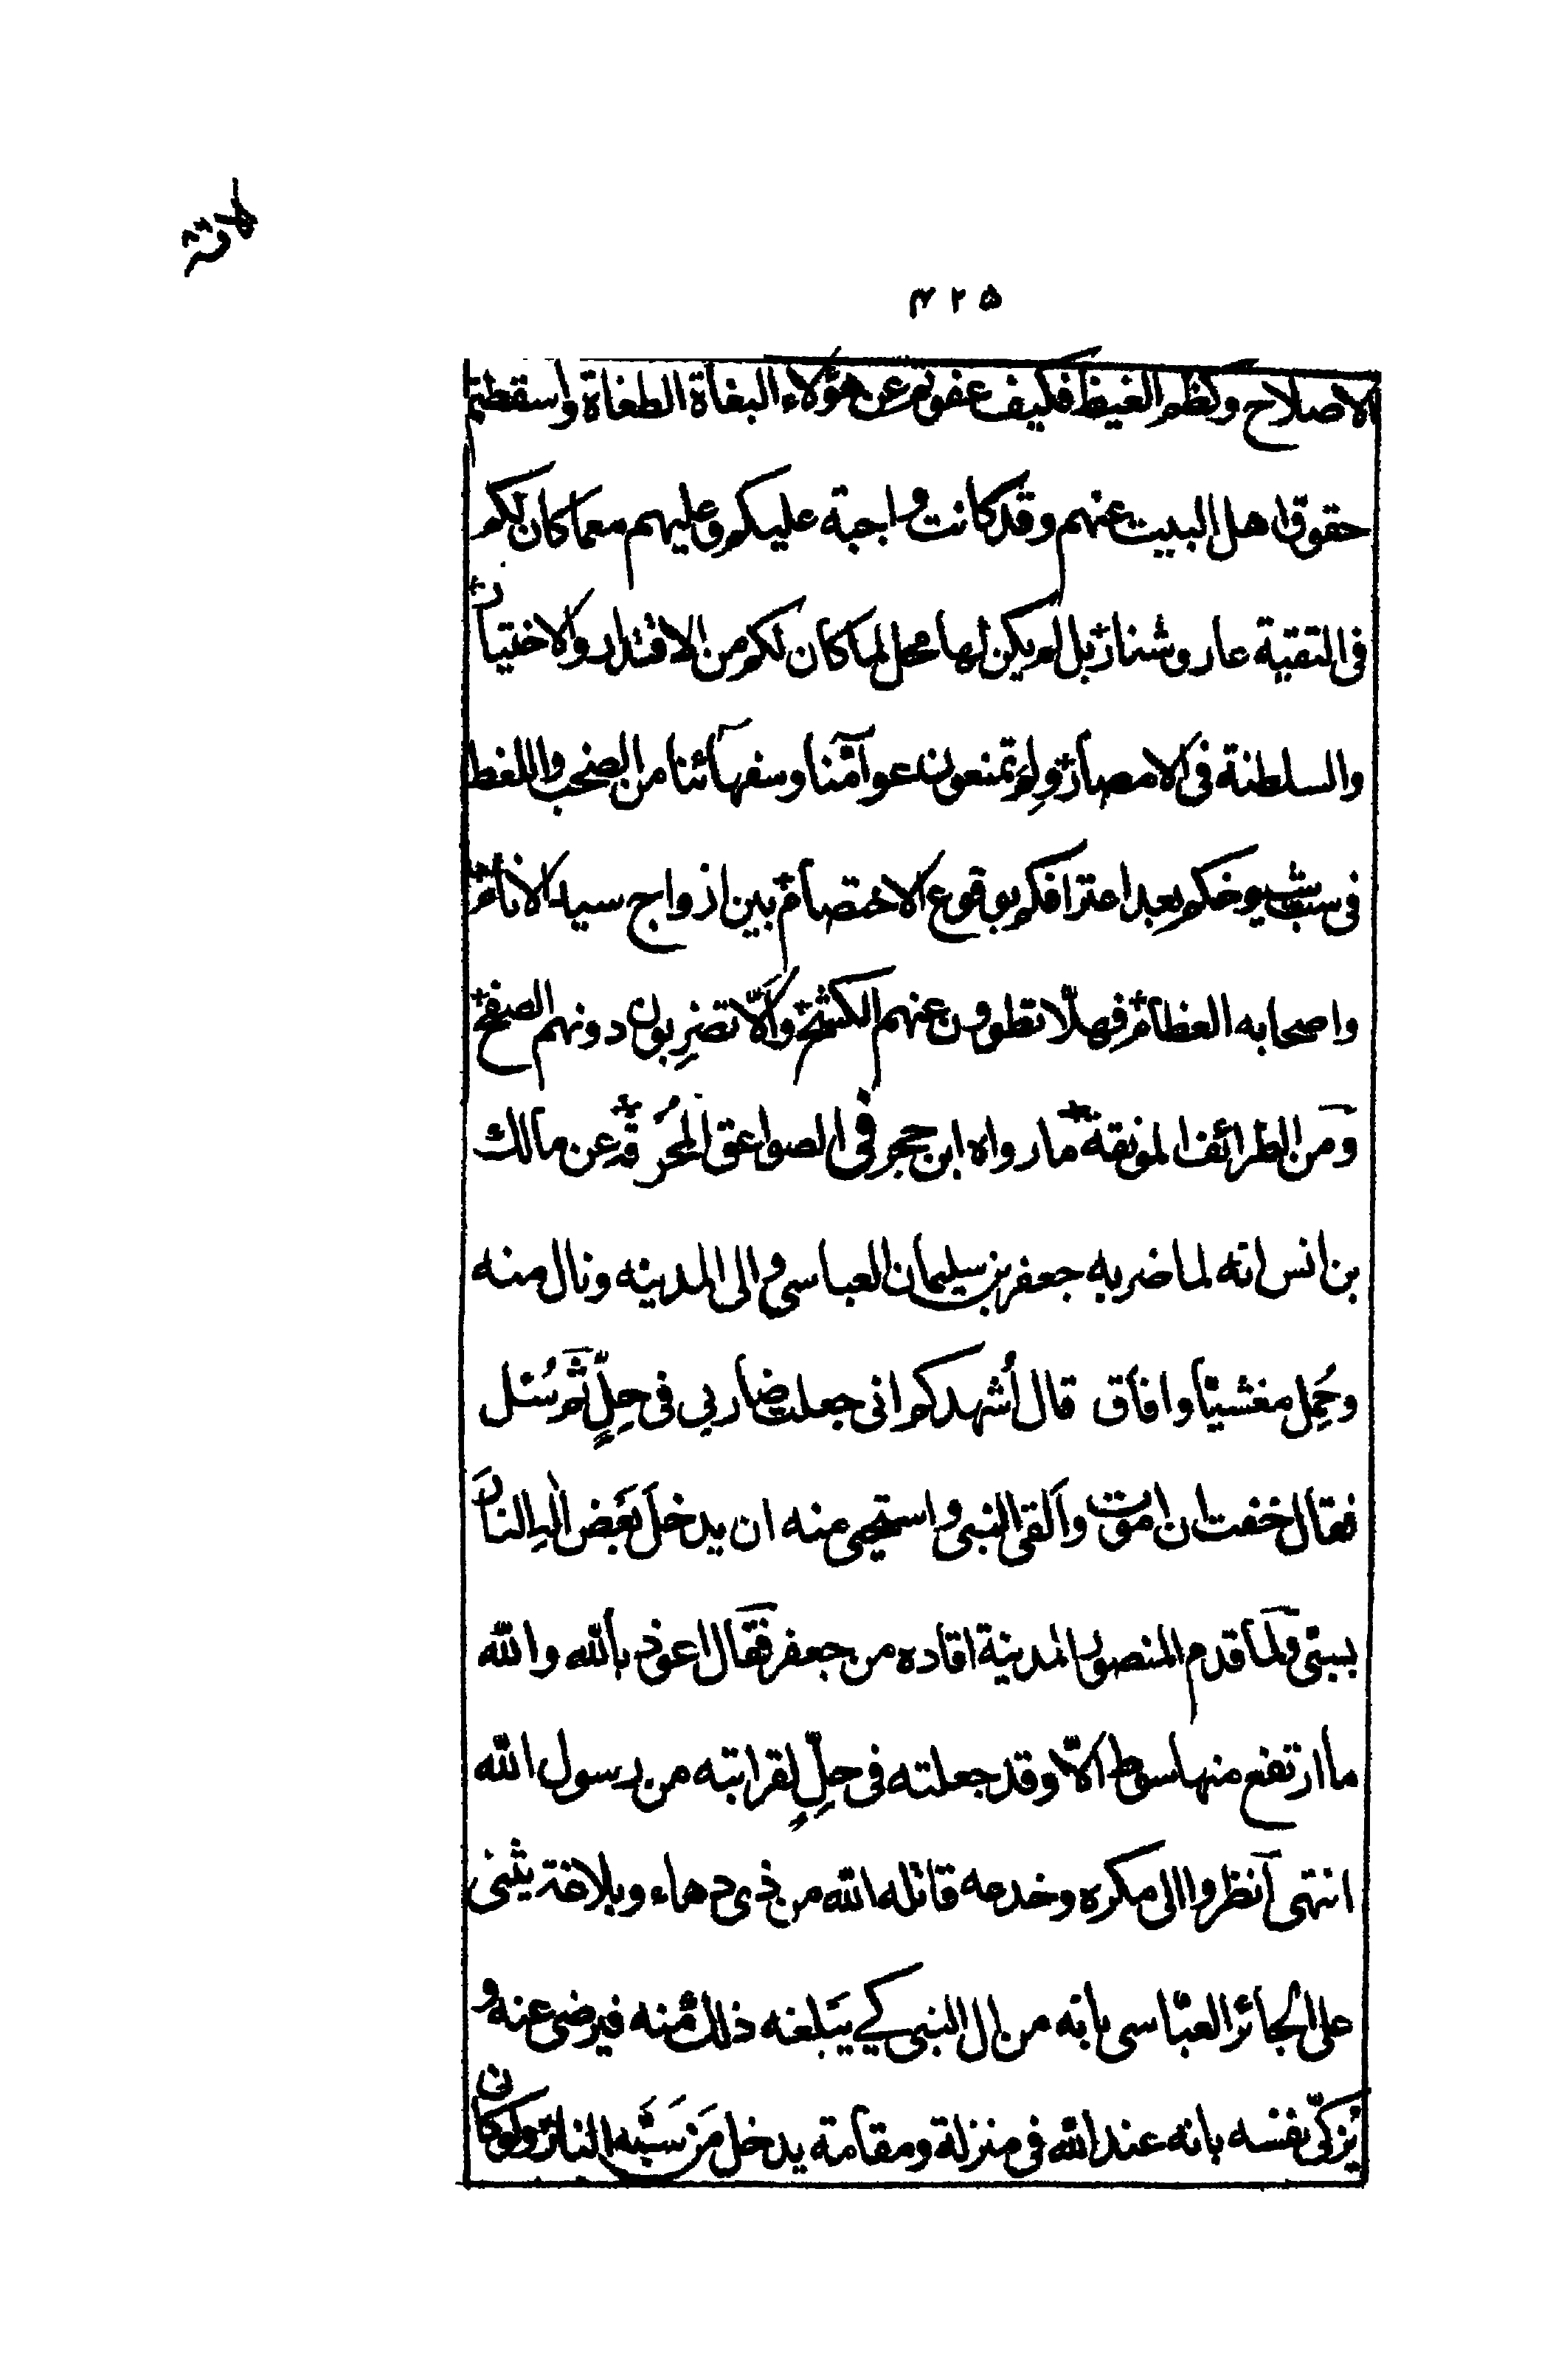 ۴۲۵
الاصلاح وكظم الغيظ فكيف عفوتم عن هؤلاء البغاة الطغاة واسقطتم
حقوق اهل البيت عنهم وقد كانت واجبة عليكم وعليهم معما كان لكم
فى التقية عار وشنار بل لم يكن لها محل لما كان لكم من الاقتدار والاختيار
والسلطنة فى الامصار ولِمَ تمنعون عوامّنا وسفهآئنا من الصخب واللغط
فى سبّ شيوخكم بعد اعترافكم بوقوع الاختصام بين ازواج سيد الانام
واصحابه العظام فهلّا تطوون عنهم الكشح وألّا تضرِبون دونهم الصفح
ومن الطرائف المونقة ما رواه ابن حجر فى الصواعق المُحْرقة عن مالك
بن انس انّه لما ضربه جعفر بن سليمان العباسى والى المدينه ونال منه
وحُمِل مغشيّا وافاق قال اُشهدكم انى جعلت ضاربي فى حِلٍّ ثم سُئل
فقال خفت ان اموت وألقى النبى واستحيى منه ان يدخل بعض اٰلِه النار
بسبتى ولما قدم المنصور المدينة اقاده من جعفر فقال اعوذ بالله والله
ما ارتفع منها سوط الّا وقد جعلته فى حلٍّ لقرابته من رسول الله
انتهى انظروا الى مكره وخدعه قاتله الله من ذى دهاء وبلاغة يثنى
على الجائر العبّاسى بانه من ال النبى كے يبلغه ذلك منه فيرضى عنه و
يُزكّى نفسه بانه عند الله فى منزلة ومقامة يدخل مَن سَبَّبه النار ولو كان